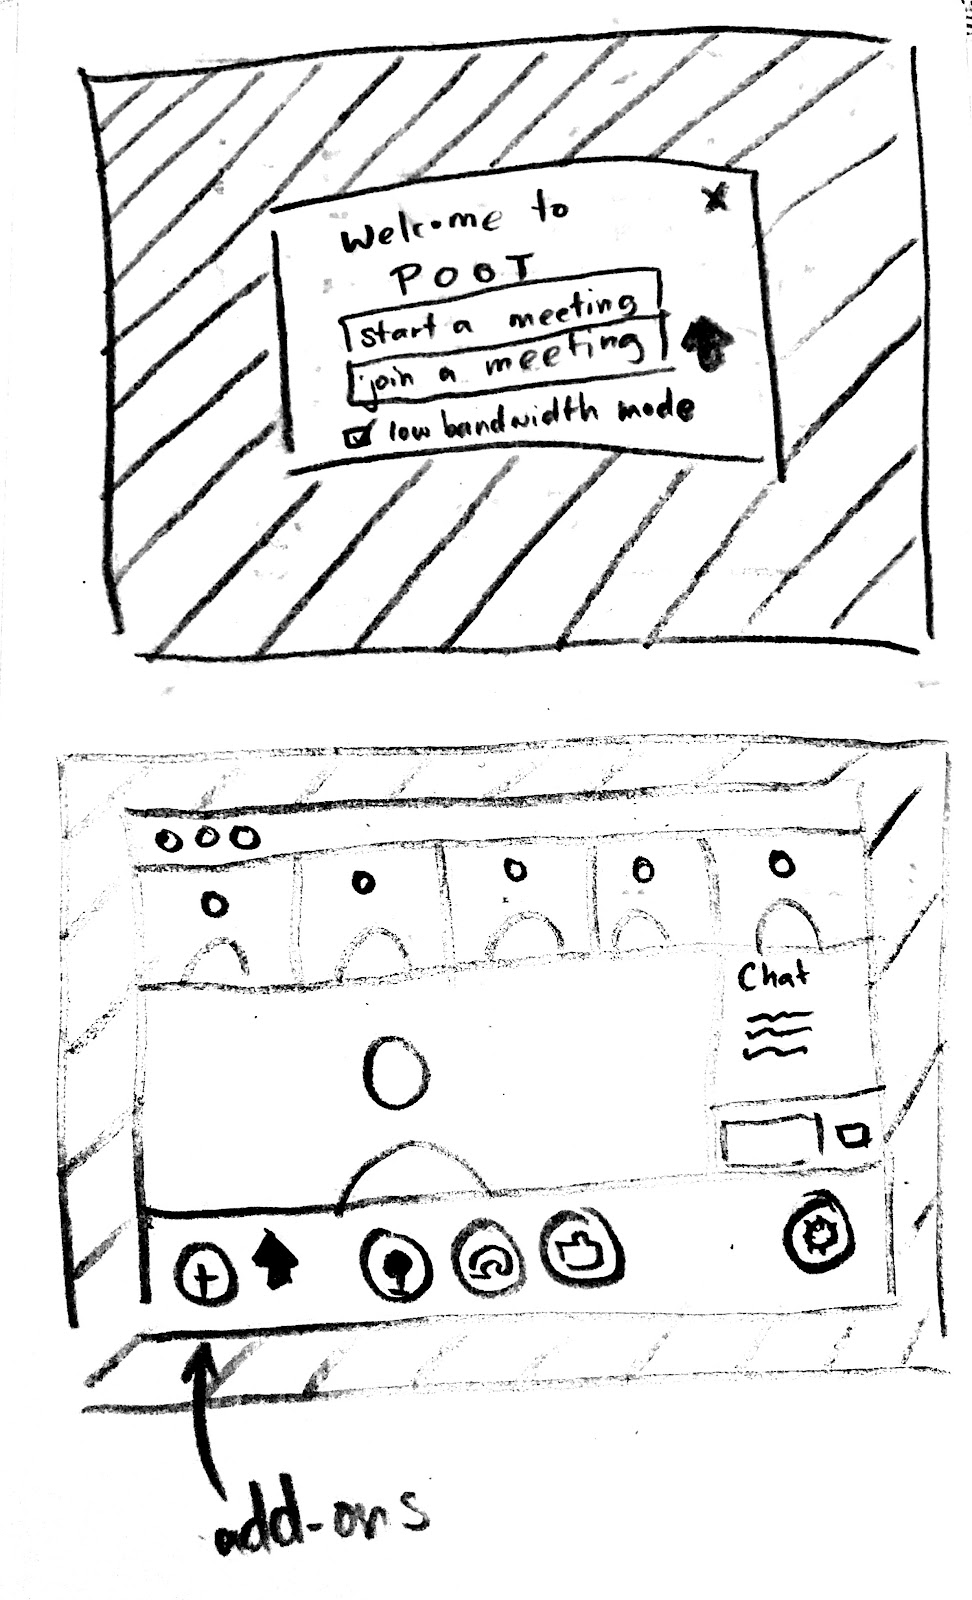 Welcome to
POOT
start a meeting
join a meeting
low bandwidth mode
Chat
add-ons